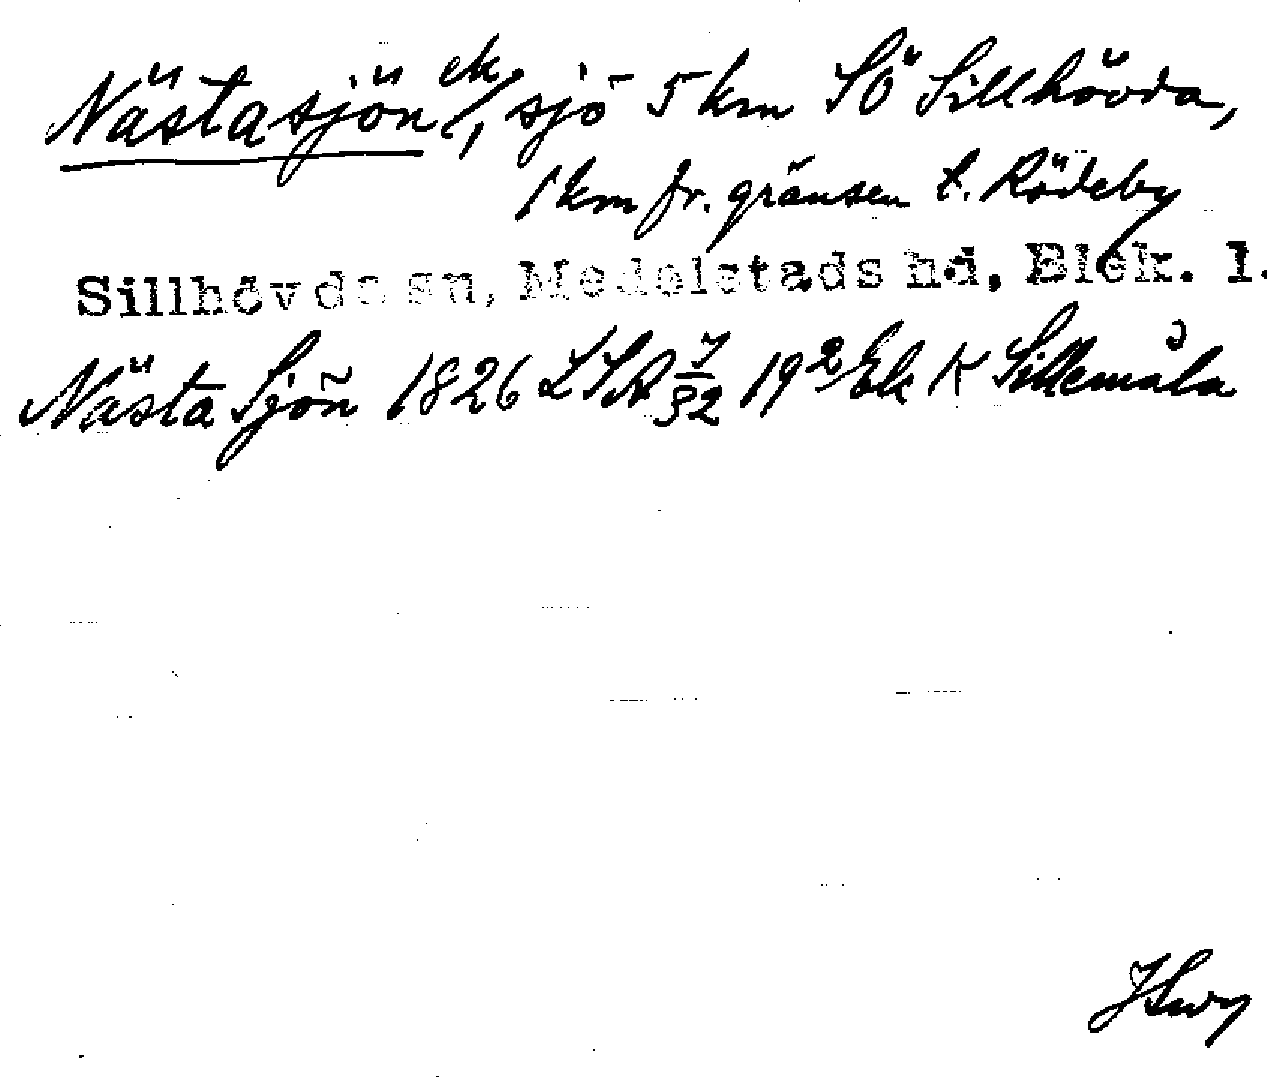 Nästasjön ek/, sjö 5 km SÖ Sillhövda,
1 km fr. gränsen t. Rödeby
Sillhövda sn, Medelstads hd, Blek. l.
Nästa Sjön 1826 LSA 7/32 19 2 Ek K Sillemåla